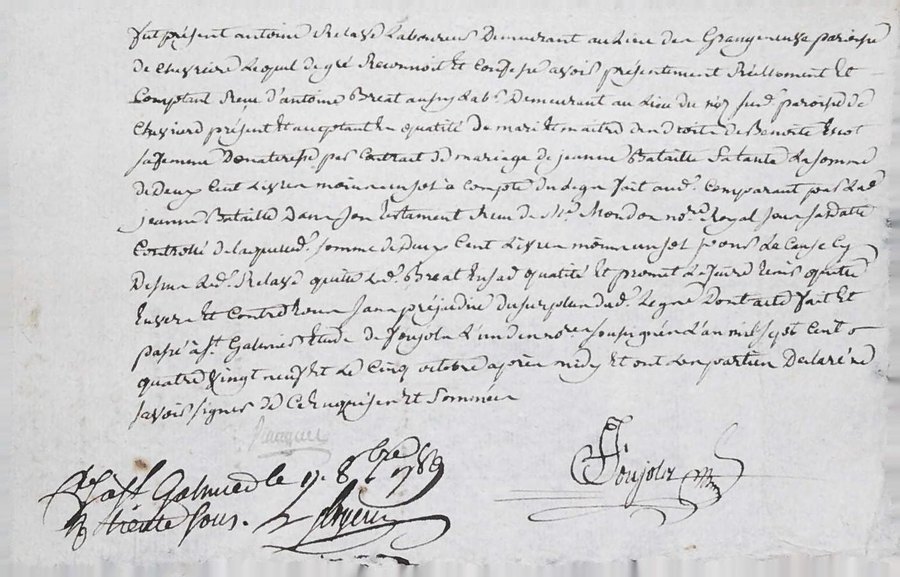 fut présent antoine Relave Laboureur Demeurant au Lieu de Grangeneuve paroisse
de Chevrier Lequel de gré Reconnoit Et Confesse avoir présentement Réellement Et
Comptant Reçu d'antoine Breat aussy Lab.r Demeurant au Lieu du paroisse de
Chevrier présent Et acceptant En qualité de mari Et maitre des droits de Benoite
sa femme par Contrait de mariage de jeanne Bataille sa tante La somme
de Deux Cent Livres moins un sol à Compte du Legs fait aud.t Comparant par Lad.e
jeanne Bataille Dans son testament Reçu de M.e Mondon no.re Royal sous sa datte
Controllé de laquelle d.e somme de Deux Cent Livres moins un sol pour La Cause Cy
Dessus Led.t Relave quitte Led.t Breat En sad.e qualité Et promet Le faire tenir quitte
Envers Et Contre tous sans préjudice du surplus dud.t Legs Dont acte fait Et
passé à S.t Galmier Etude de Poujolx L'un des no.res soussignés L'an mil sept Cent
quatre vingt neuf Et Le Cinq octobre après midy Et ont Les parties Déclaré ne
savoir signer de Ce Enquises Et Sommées
C.lé à S.t Galmier le 17. 8bre 1789
R trente sous.
Poujolx